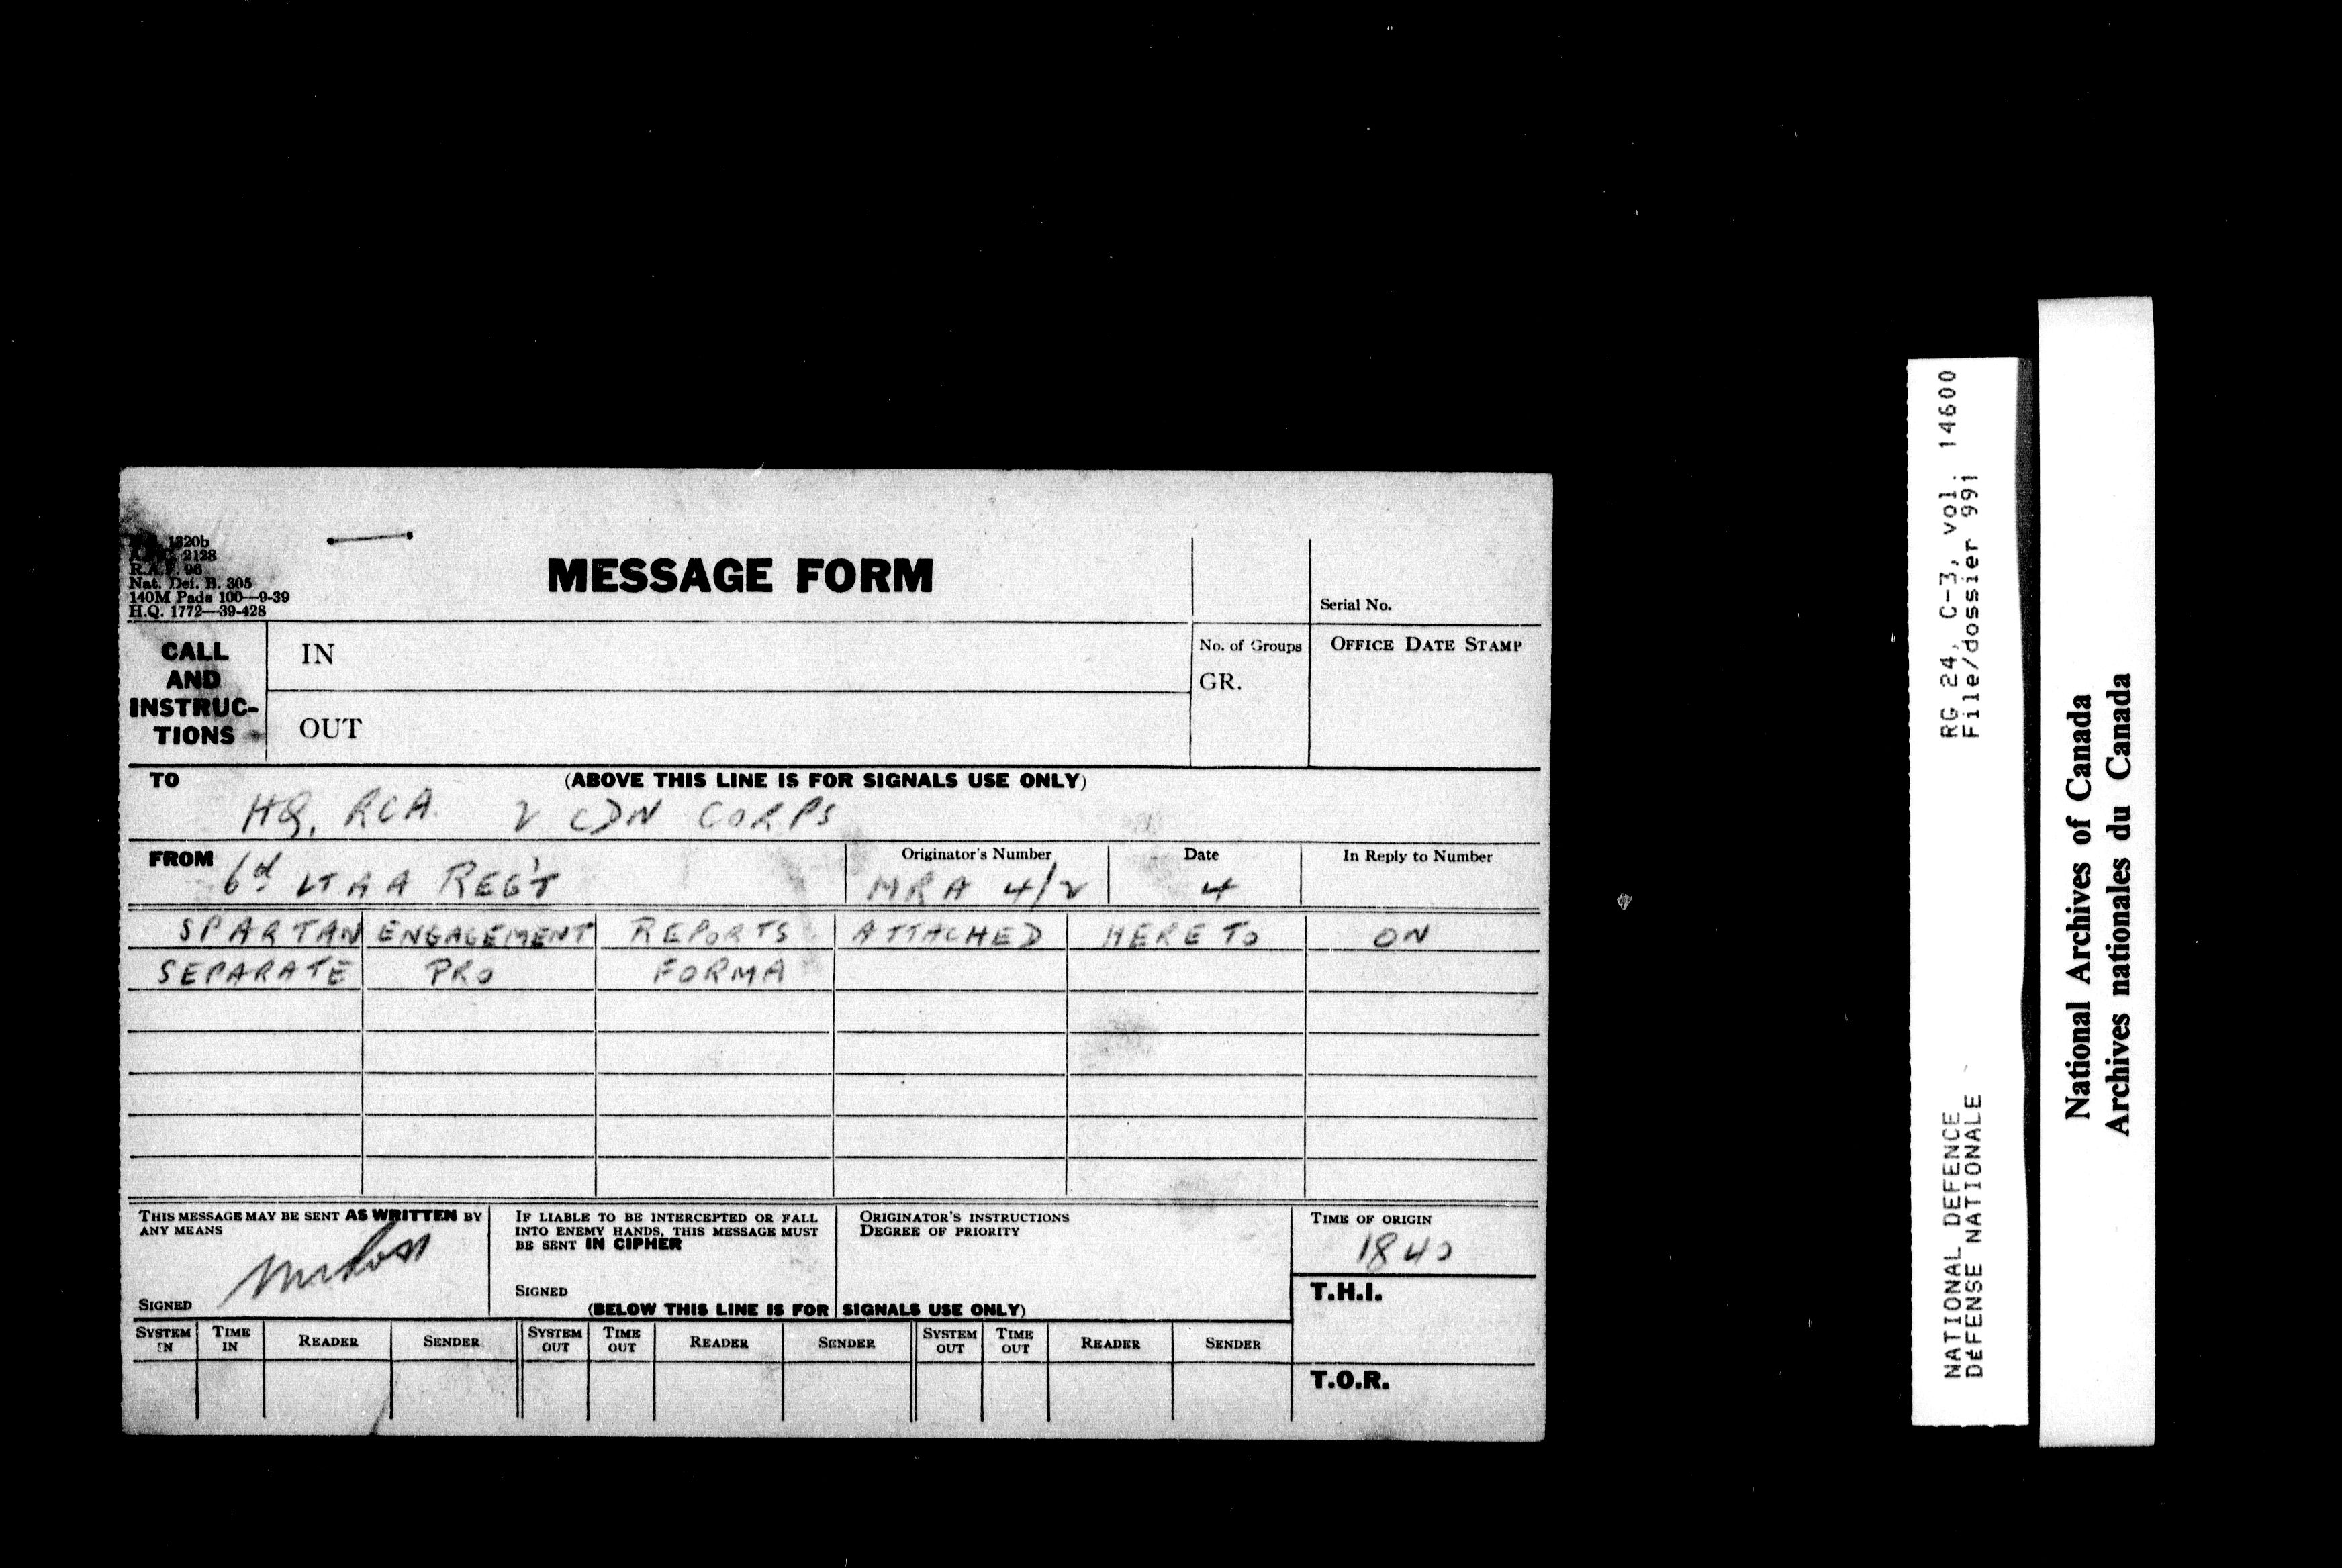 1320b
2128
R.A.F. 96
Nat. Def. B. 305
140M Pads 100—9-39
H.Q. 1772—39-428
MESSAGE FORM
Serial No.
CALL AND INSTRUC-TIONS
IN
OUT
No. of Groups
GR.
OFFICE DATE STAMP
TO
(ABOVE THIS LINE IS FOR SIGNALS USE ONLY)
HQ, RCA. 2 CDN CORPS
FROM
6d LT A A REG'T
Originator's Number
MRA 4/2
Date
4
In Reply to Number
SPARTAN ENGAGEMENT REPORTS ATTACHED HERE TO ON
SEPARATE PRO FORMA
THIS MESSAGE MAY BE SENT AS WRITTEN BY
ANY MEANS
SIGNED
IF LIABLE TO BE INTERCEPTED OR FALL
INTO ENEMY HANDS, THIS MESSAGE MUST
BE SENT IN CIPHER
SIGNED
ORIGINATOR'S INSTRUCTIONS
DEGREE OF PRIORITY
TIME OF ORIGIN
1840
T.H.I.
(BELOW THIS LINE IS FOR SIGNALS USE ONLY)
SYSTEM IN
TIME IN
READER
SENDER
SYSTEM OUT
TIME OUT
READER
SENDER
SYSTEM OUT
TIME OUT
READER
SENDER
T.O.R.
NATIONAL DEFENCE RG 24, C-3, vol. 14600
DÉFENSE NATIONALE File/dossier 991
National Archives of Canada
Archives nationales du Canada